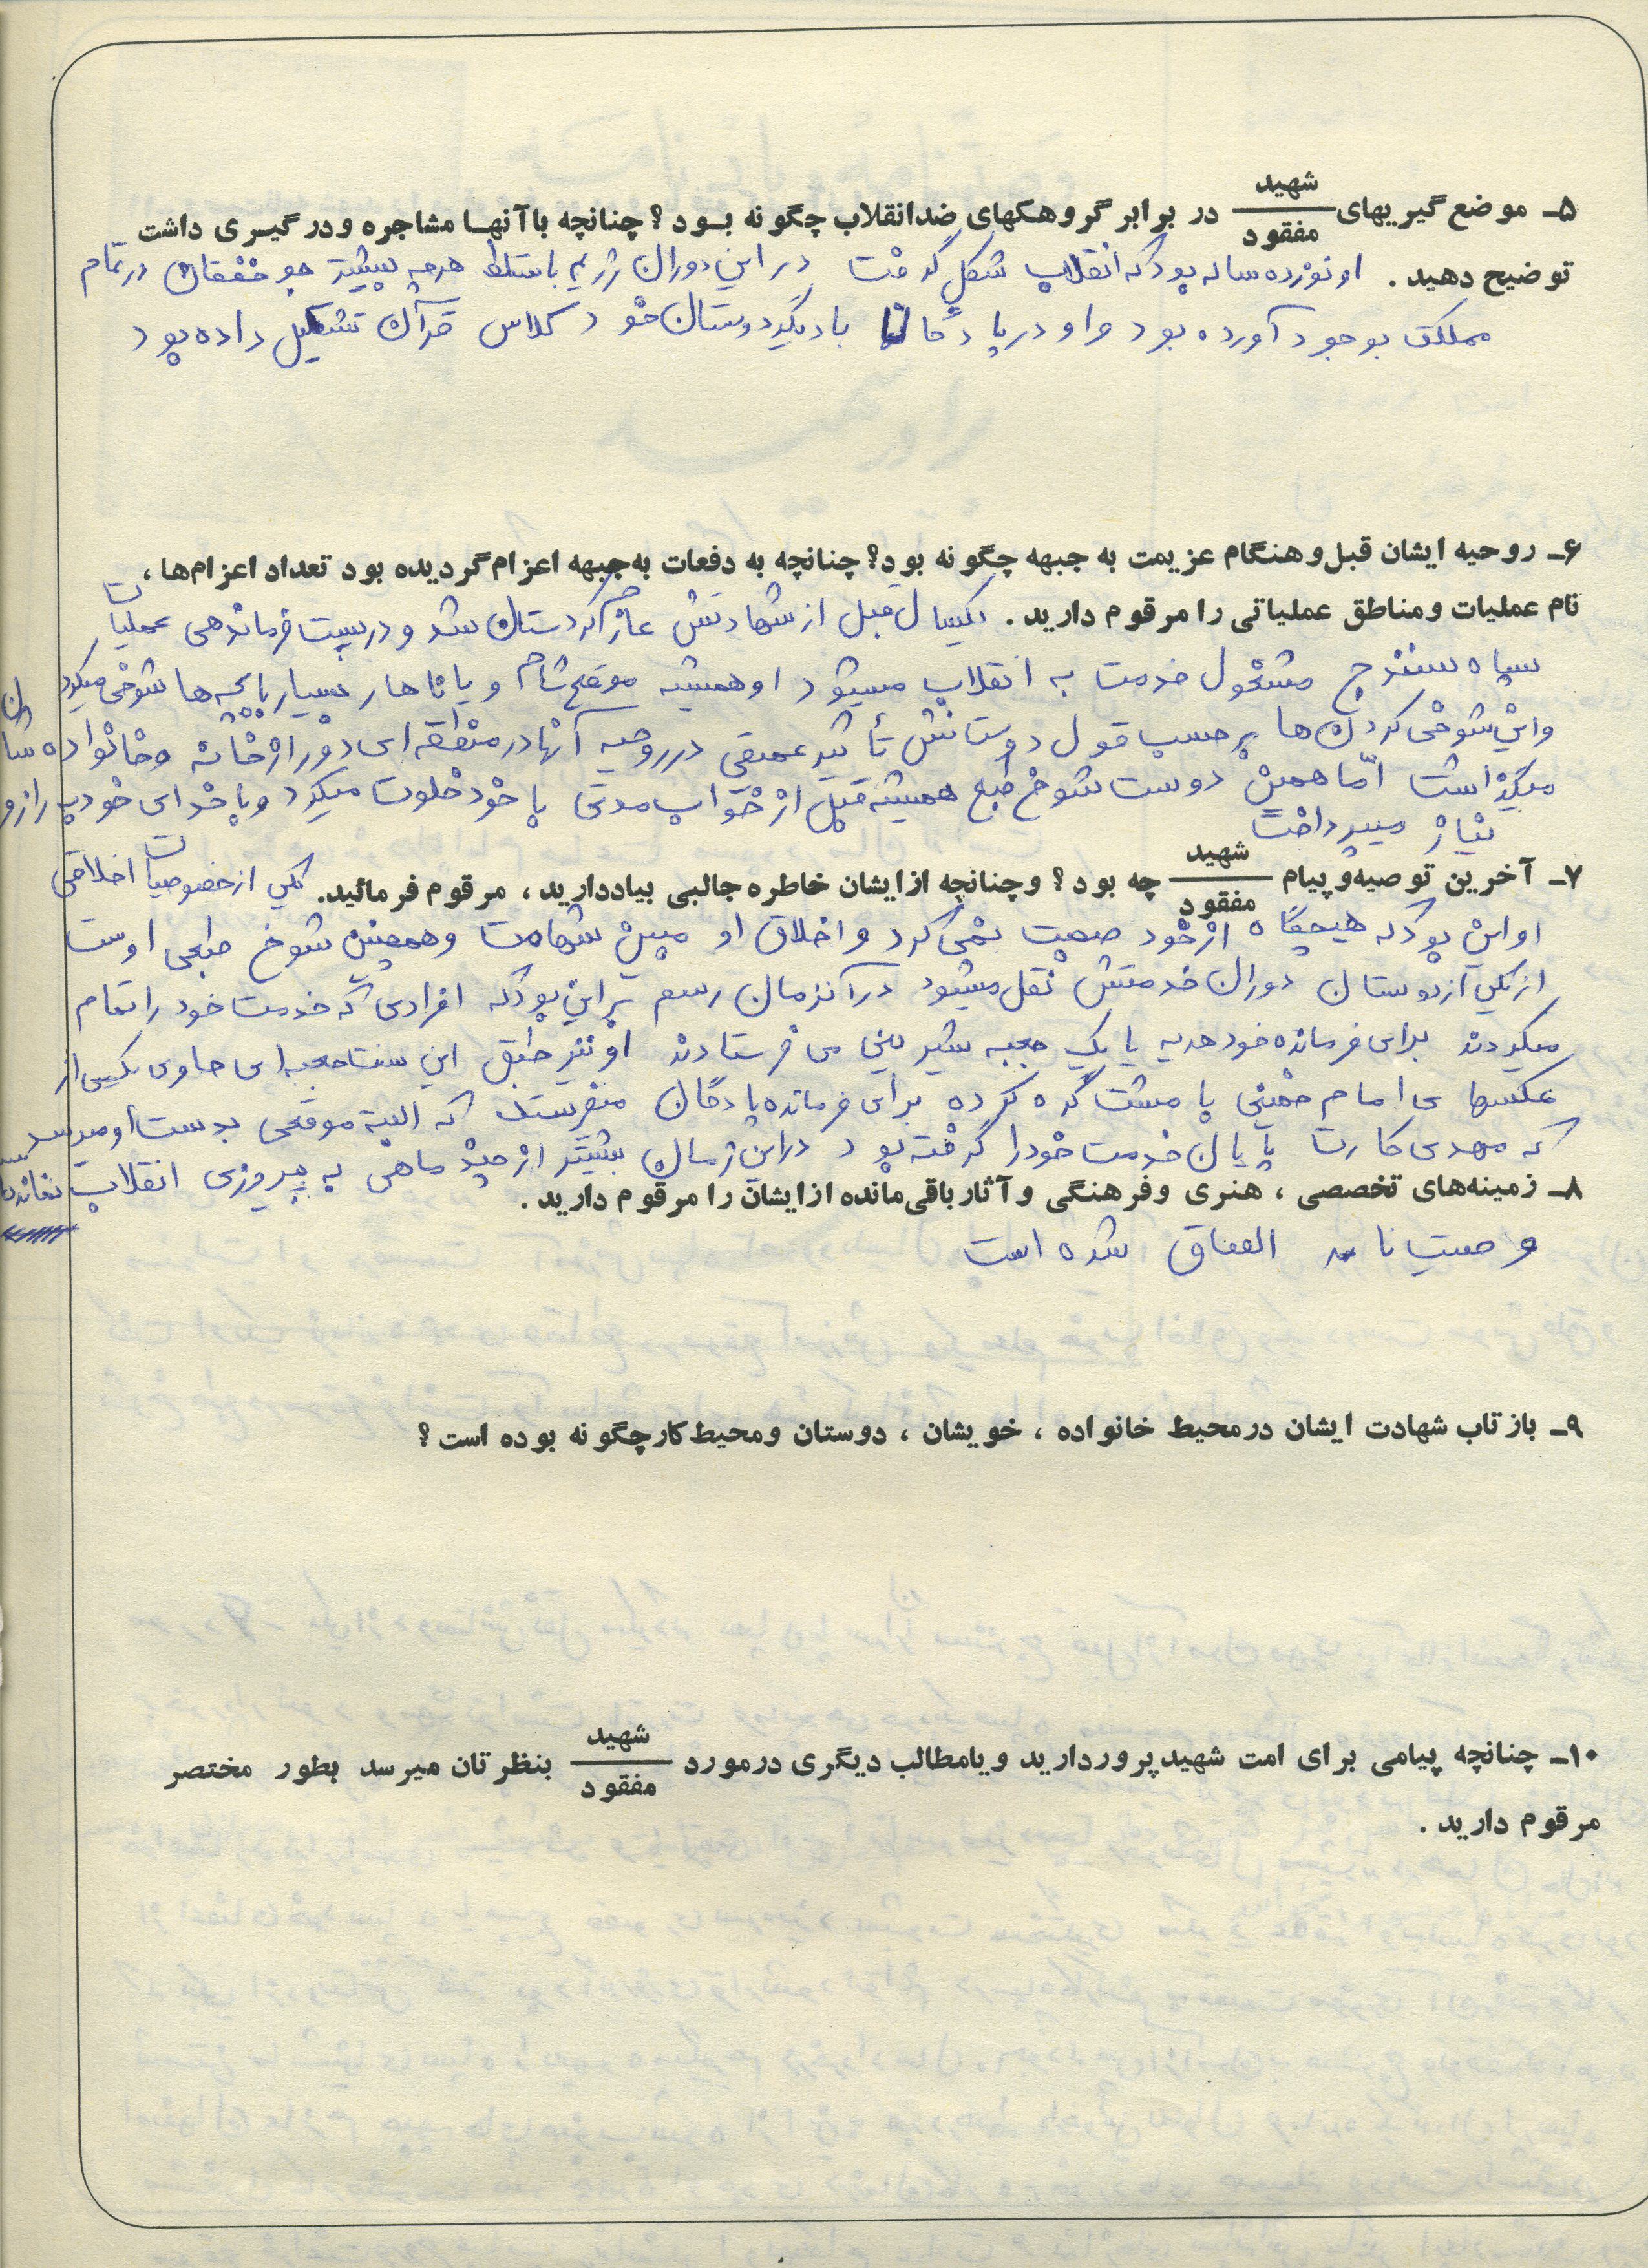 ۵ـ موضع‌گیریهای شهید/مفقود در برابر گروهکهای ضدانقلاب چگونه بود؟ چنانچه باآنها مشاجره و درگیری داشت
توضیح دهید. او نوزده ساله بود که انقلاب شکل گرفت در این دوران رژیم با تسلط هرچه بیشتر جو خفقان در تمام
مملکت بوجود آورده بود و او در پادگان با دیگر دوستان خود کلاس قرآن تشکیل داده بود
۶ـ روحیه ایشان قبل و هنگام عزیمت به جبهه چگونه بود؟ چنانچه به دفعات به جبهه اعزام گردیده بود تعداد اعزام‌ها،
نام عملیات و مناطق عملیاتی را مرقوم دارید. یکسال قبل از شهادتش عازم کردستان شد و در پست فرماندهی عملیات
سپاه سنندج مشغول خدمت به انقلاب میشود او همیشه موقع شام و یا ناهار بسیار با بچه‌ها شوخی میکرد
و این شوخی کردن‌ها بر حسب قول دوستانش تأثیر عمیقی در روحیه آنها در منطقه‌ای دور از خانه و خانواده شان
میگذاشت امّا همین دوست شوخ طبع همیشه قبل از خواب مدتی با خود خلوت میکرد و با خدای خود به راز و
نیاز میپرداخت
۷ـ آخرین توصیه و پیام شهید/مفقود چه بود؟ و چنانچه از ایشان خاطره جالبی بیاددارید، مرقوم فرمائید. یکی از خصوصیات اخلاقی
او این بود که هیچگاه از خود صحبت نمی کرد و اخلاق او مبین شهامت و همچنین شوخ طبعی اوست
از یکی از دوستان دوران خدمتش نقل میشود در آنزمان رسم بر این بود که افرادی که خدمت خود را تمام
میکردند برای فرمانده خود هدیه یا یک جعبه شیرینی می فرستادند او نیز طبق این سنت جعبه ای حاوی یکی از
عکسهای امام خمینی با مشت گره کرده برای فرمانده پادگان میفرستد که البته موقعی بدست او میرسد
که مهدی کارت پایان خدمت خود را گرفته بود در این زمان بیشتر از چند ماهی به پیروزی انقلاب نمانده
۸ـ زمینه‌های تخصصی، هنری و فرهنگی و آثار باقی‌مانده از ایشان را مرقوم دارید.
وصیت نامه الصاق شده است
۹ـ بازتاب شهادت ایشان در محیط خانواده، خویشان، دوستان و محیط کار چگونه بوده است؟
۱۰ـ چنانچه پیامی برای امت شهیدپرور دارید و یا مطالب دیگری در مورد شهید/مفقود بنظرتان میرسد بطور مختصر
مرقوم دارید.